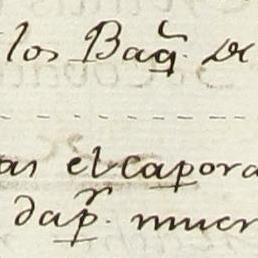 los Baq̃. de
as el capora
dap.ʳ muer